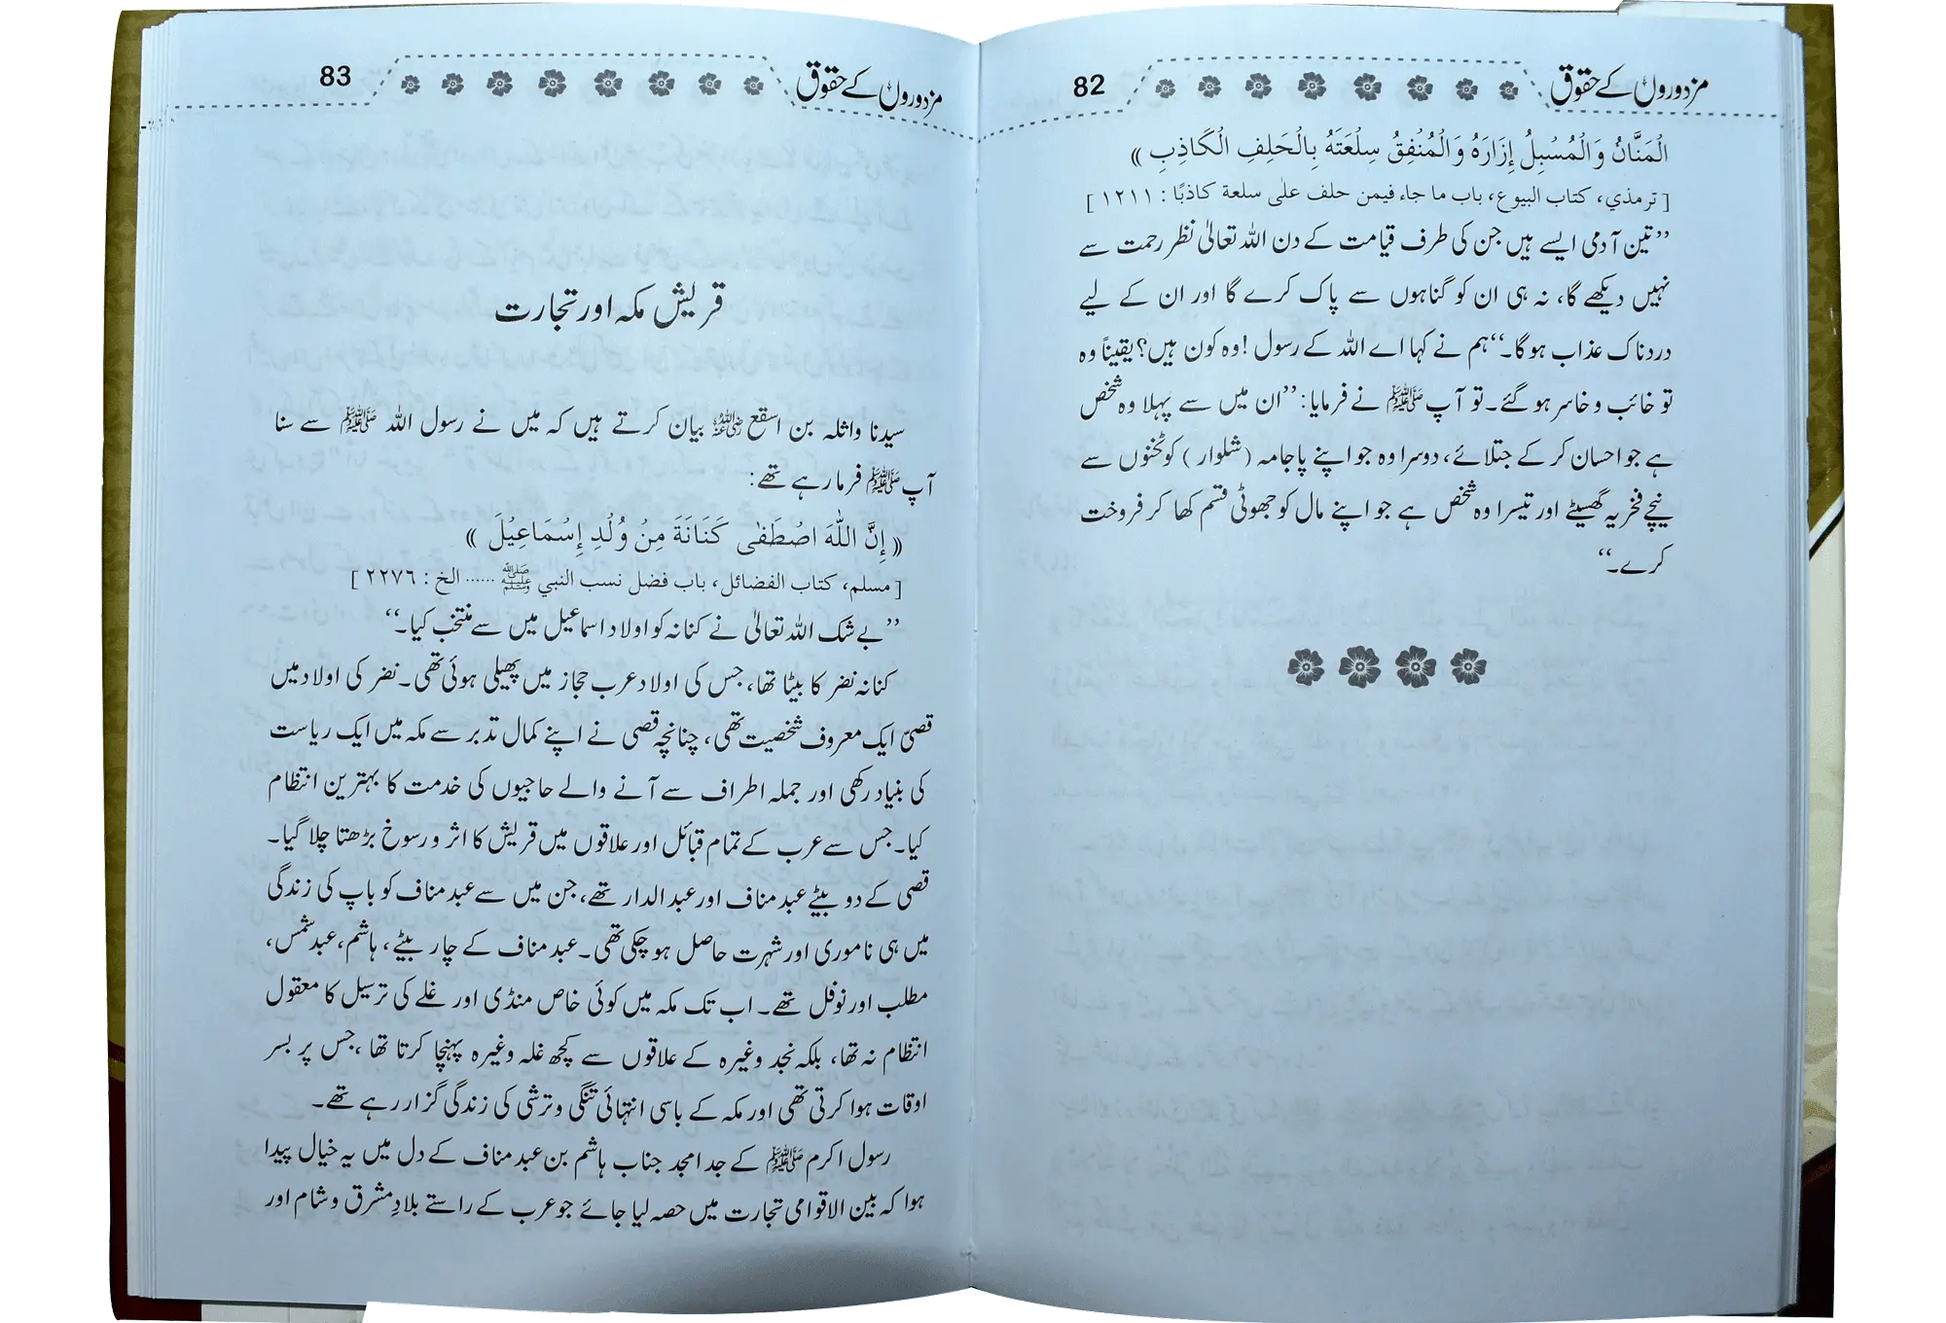 مزدوروں کے حقوق 82
الْمَنَّانُ وَالْمُسْبِلُ إِزَارَهُ وَالْمُنْفِقُ سِلْعَتَهُ بِالْحَلِفِ الْكَاذِبِ ))
[ ترمذي، كتاب البيوع، باب ما جاء فيمن حلف علٰى سلعة كاذبًا : ١٢١١ ]
’’تین آدمی ایسے ہیں جن کی طرف قیامت کے دن اللہ تعالیٰ نظر رحمت سے
نہیں دیکھے گا، نہ ہی ان کو گناہوں سے پاک کرے گا اور ان کے لیے
دردناک عذاب ہوگا۔‘‘ ہم نے کہا اے اللہ کے رسول! وہ کون ہیں؟ یقیناً وہ
تو خائب و خاسر ہو گئے۔ تو آپ ﷺ نے فرمایا: ’’ان میں سے پہلا وہ شخص
ہے جو احسان کر کے جتلائے، دوسرا وہ جو اپنے پاجامہ (شلوار) کو ٹخنوں سے
نیچے فخریہ گھسیٹے اور تیسرا وہ شخص ہے جو اپنے مال کو جھوٹی قسم کھا کر فروخت
کرے۔‘‘
مزدوروں کے حقوق 83
قریش مکہ اور تجارت
سیدنا واثلہ بن اسقع رضی اللہ عنہ بیان کرتے ہیں کہ میں نے رسول اللہ ﷺ سے سنا
آپ ﷺ فرما رہے تھے:
(( إِنَّ اللّٰهَ اصْطَفٰى كَنَانَةَ مِنْ وُلْدِ إِسْمَاعِيْلَ ))
[ مسلم، كتاب الفضائل، باب فضل نسب النبي ﷺ ...... الخ : ٢٢٧٦ ]
’’بے شک اللہ تعالیٰ نے کنانہ کو اولاد اسماعیل میں سے منتخب کیا۔‘‘
کنانہ نضر کا بیٹا تھا، جس کی اولاد عرب حجاز میں پھیلی ہوئی تھی۔ نضر کی اولاد میں
قصیّ ایک معروف شخصیت تھی، چنانچہ قصی نے اپنے کمال تدبر سے مکہ میں ایک ریاست
کی بنیاد رکھی اور جملہ اطراف سے آنے والے حاجیوں کی خدمت کا بہترین انتظام
کیا۔ جس سے عرب کے تمام قبائل اور علاقوں میں قریش کا اثر و رسوخ بڑھتا چلا گیا۔
قصی کے دو بیٹے عبد مناف اور عبد الدار تھے، جن میں سے عبد مناف کو باپ کی زندگی
میں ہی ناموری اور شہرت حاصل ہو چکی تھی۔ عبد مناف کے چار بیٹے، ہاشم، عبد شمس،
مطلب اور نوفل تھے۔ اب تک مکہ میں کوئی خاص منڈی اور غلے کی ترسیل کا معقول
انتظام نہ تھا، بلکہ نجد وغیرہ کے علاقوں سے کچھ غلہ وغیرہ پہنچا کرتا تھا، جس پر بسر
اوقات ہوا کرتی تھی اور مکہ کے باسی انتہائی تنگی و ترشی کی زندگی گزار رہے تھے۔
رسول اکرم ﷺ کے جد امجد جناب ہاشم بن عبد مناف کے دل میں یہ خیال پیدا
ہوا کہ بین الاقوامی تجارت میں حصہ لیا جائے جو عرب کے راستے بلادِ مشرق و شام اور